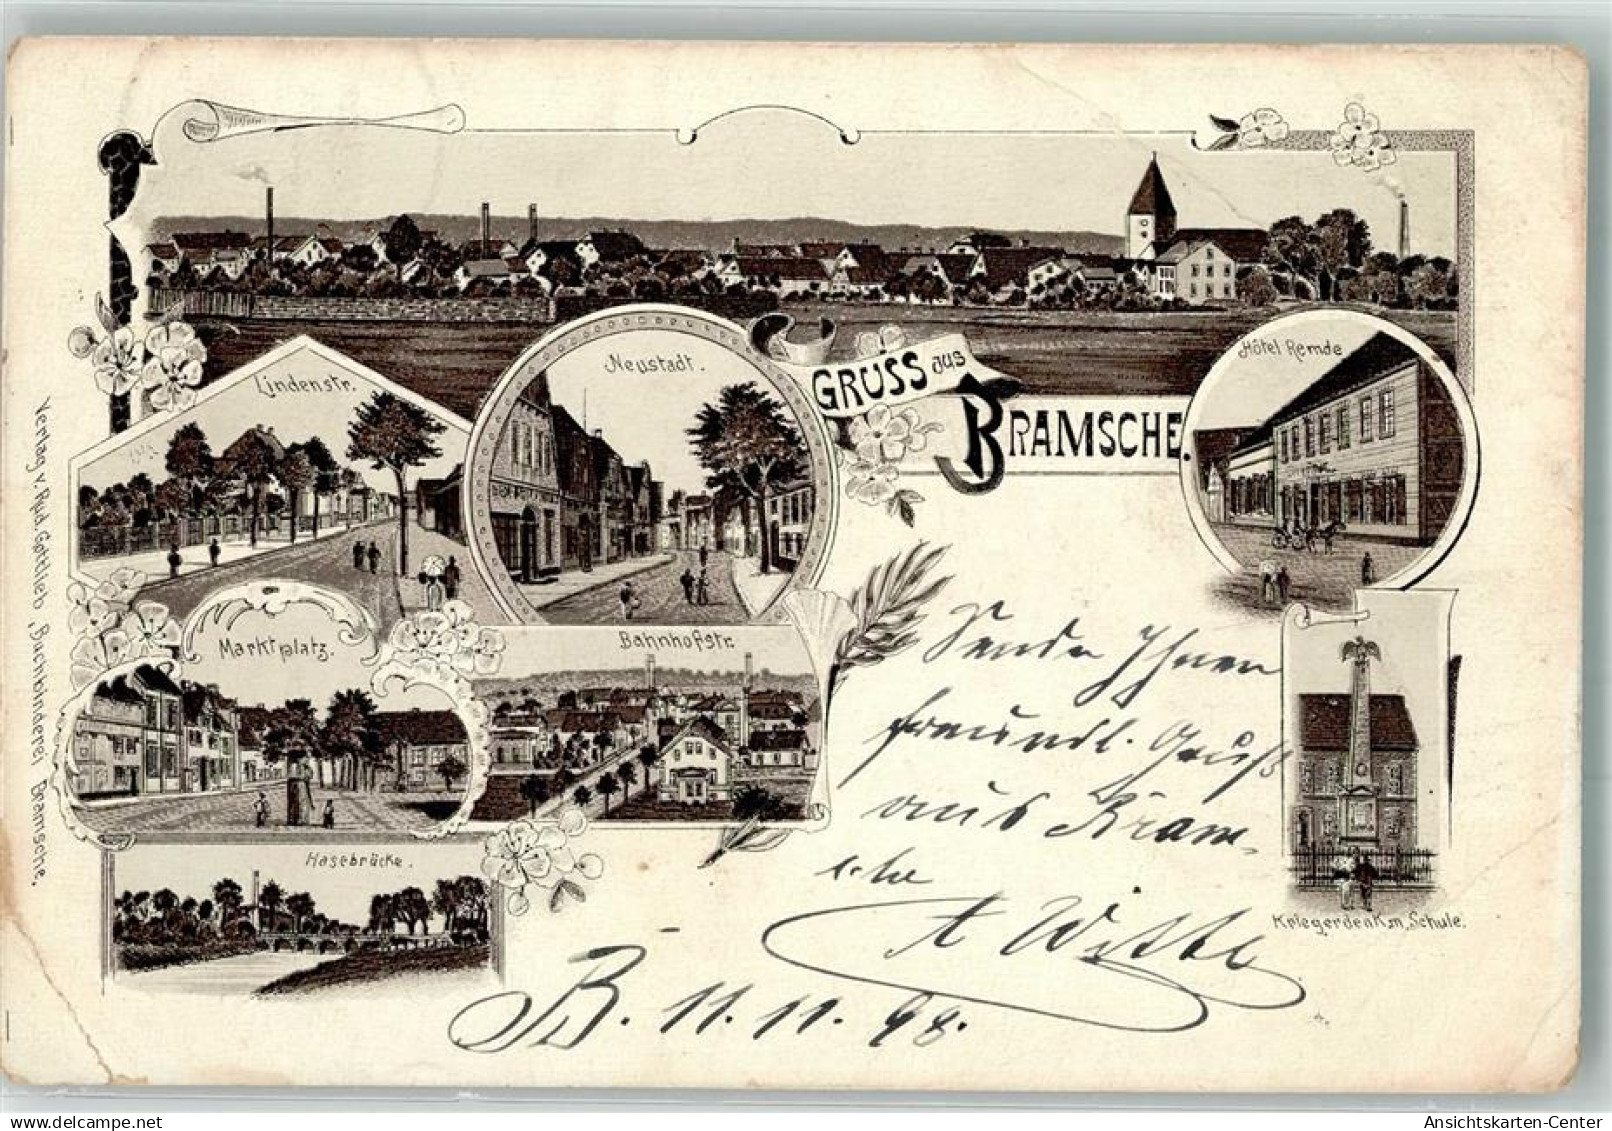 Lindenstr.
Neustadt.
GRUSS aus
BRAMSCHE.
Hôtel Remde
Marktplatz.
Bahnhofstr.
Hasebrücke.
Kriegerdenkm, Schule.
Verlag v. Rud. Gottlieb, Buchbinderei Bramsche.
Sende Ihnen
freundl. Gruß
aus Bram-
sche
A Witte
B. 11. 11. 98.
AnsichtsKarten-Center